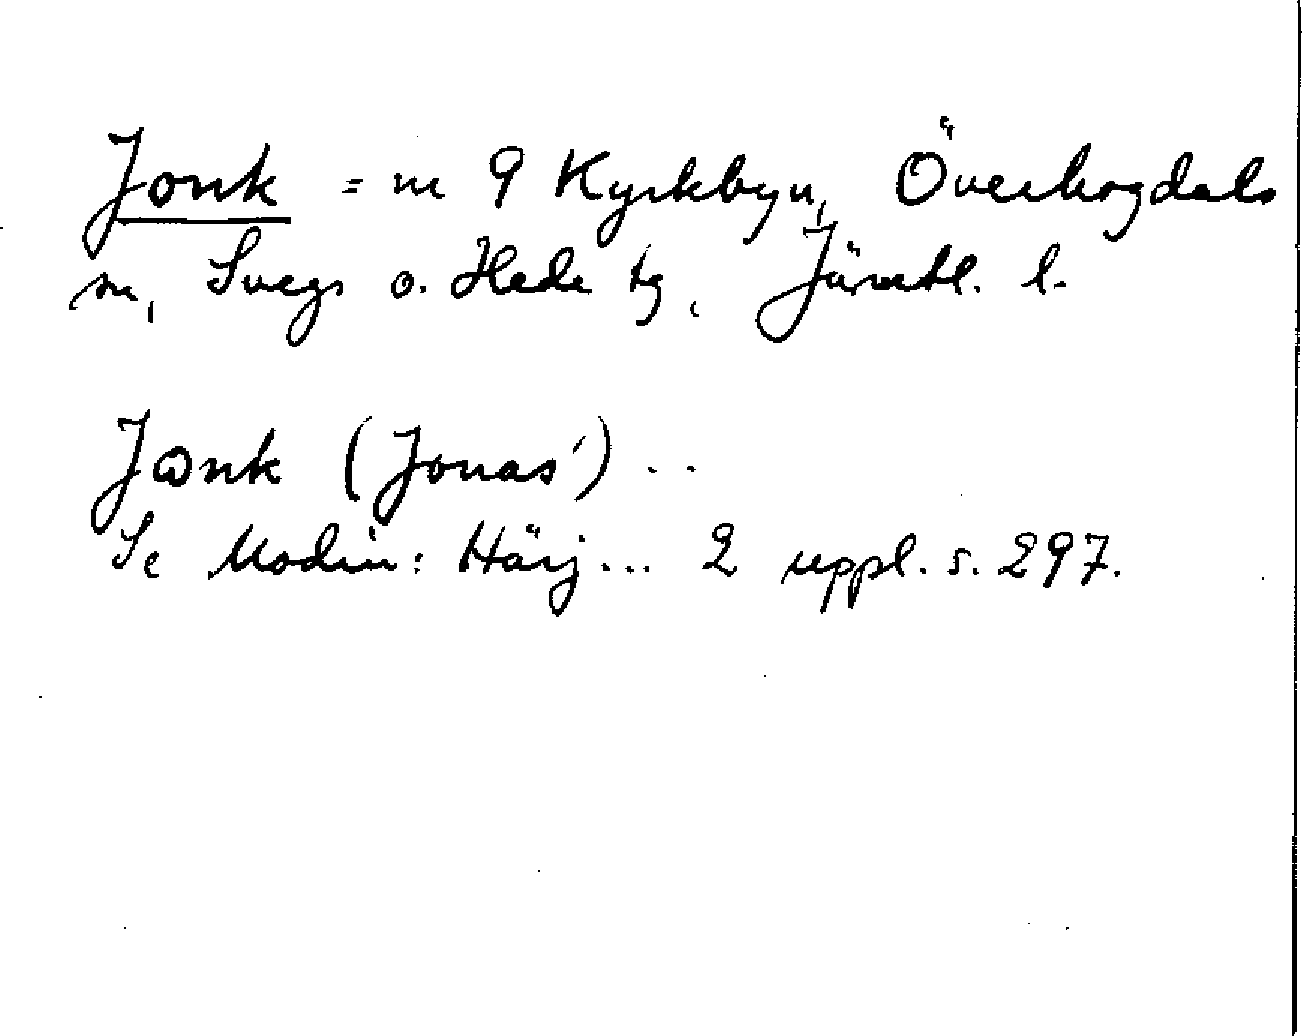 Jonk = nr 9 Kyrkbyn, Överhogdals
sn, Svegs o. Hede tg, Jämtl. l.
Jonk (Jonas') ..
Se Modin: Härj... 2 uppl. s. 297.